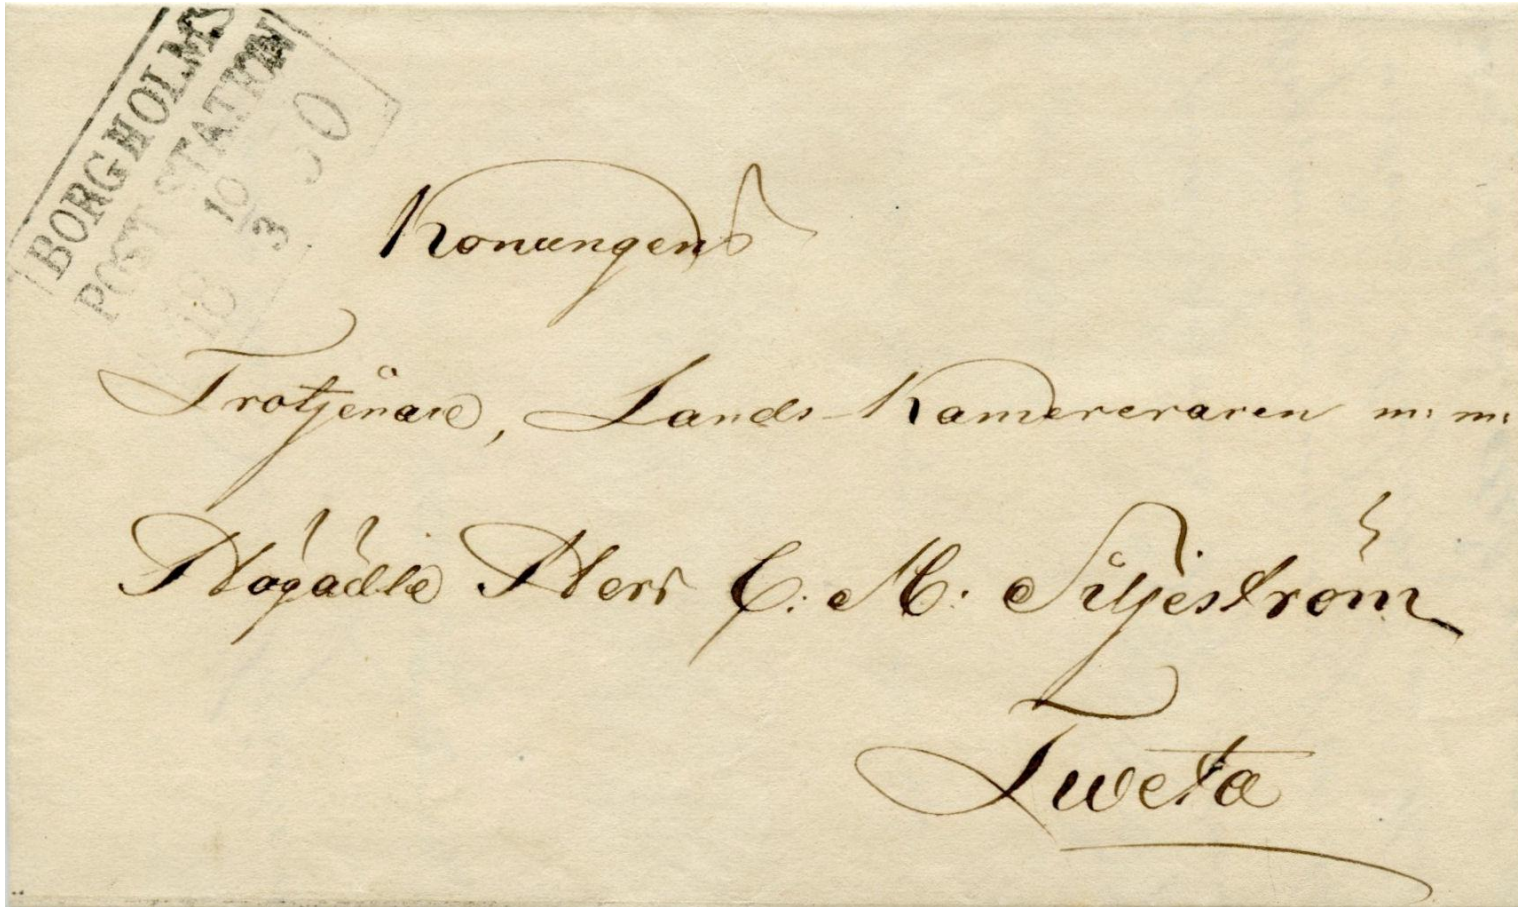 BORGHOLMS
POST STATION
10
3
18 50
Konungens
Trotjenare, Lands-Kamereraren m: m:
Högädle Herr C: M: Siljeström
Tweta